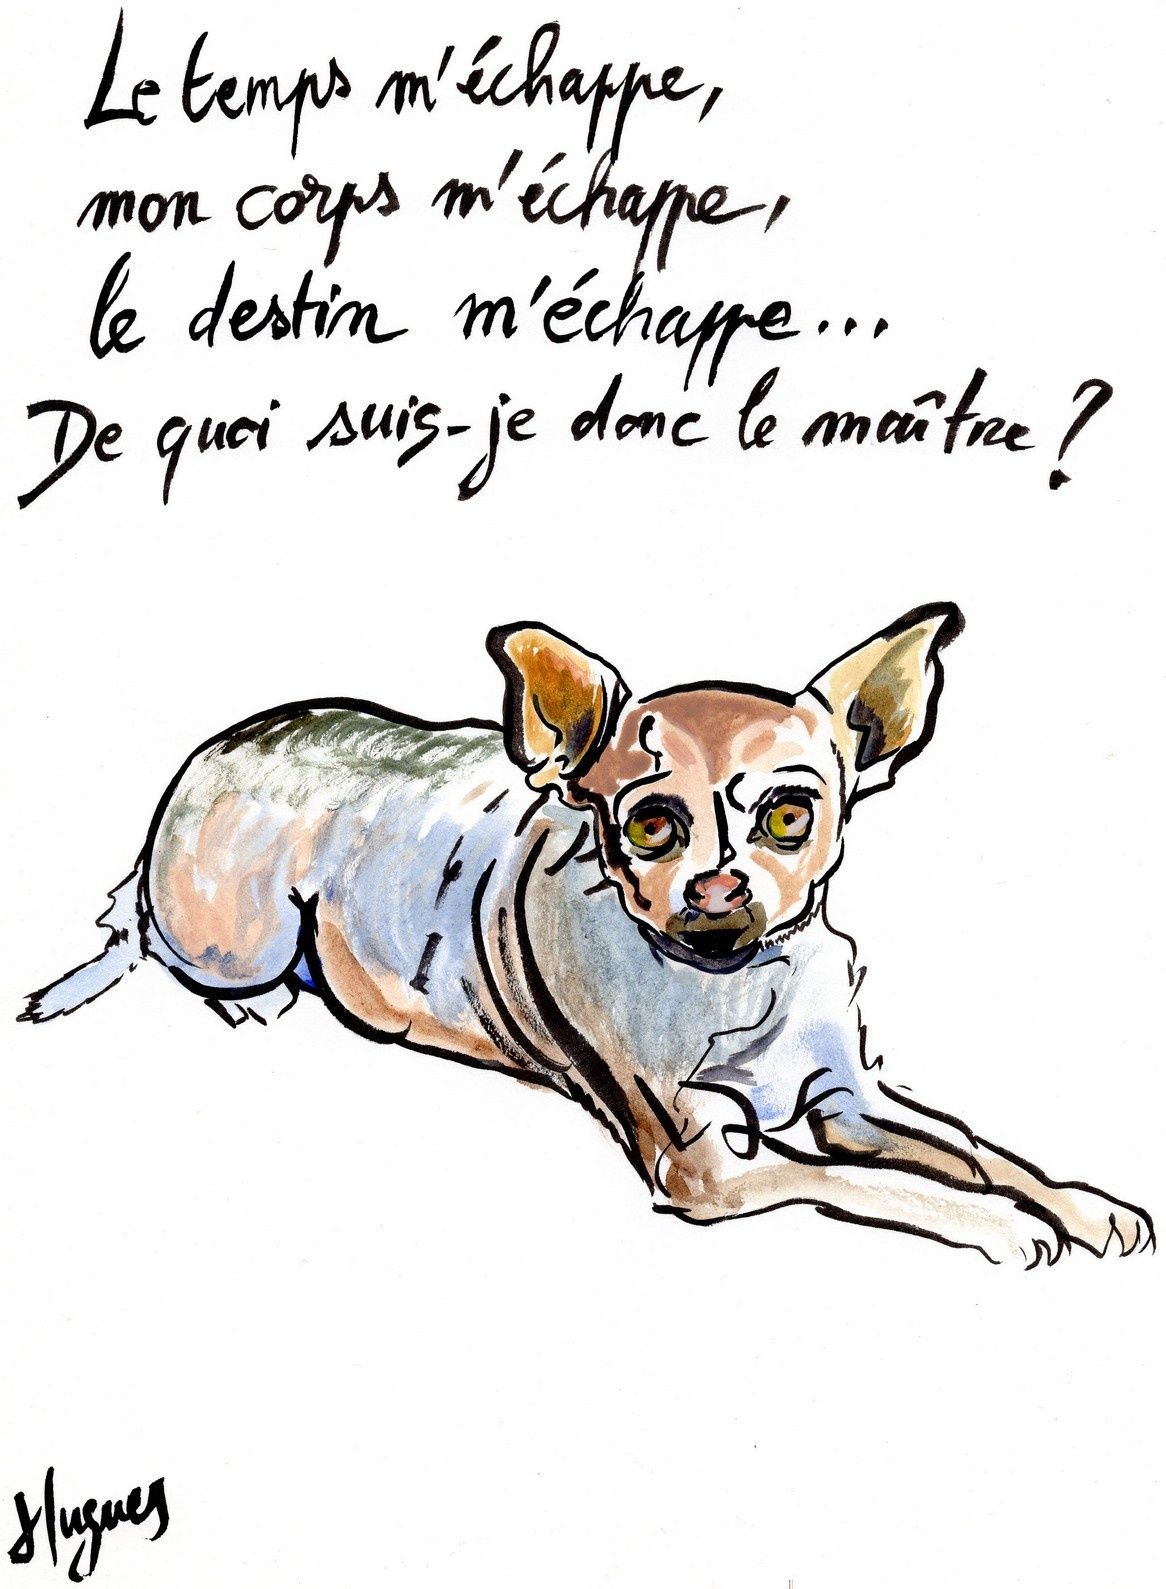 Le temps m'échappe,
mon corps m'échappe,
le destin m'échappe...
De quoi suis-je donc le maître ?
Hugues